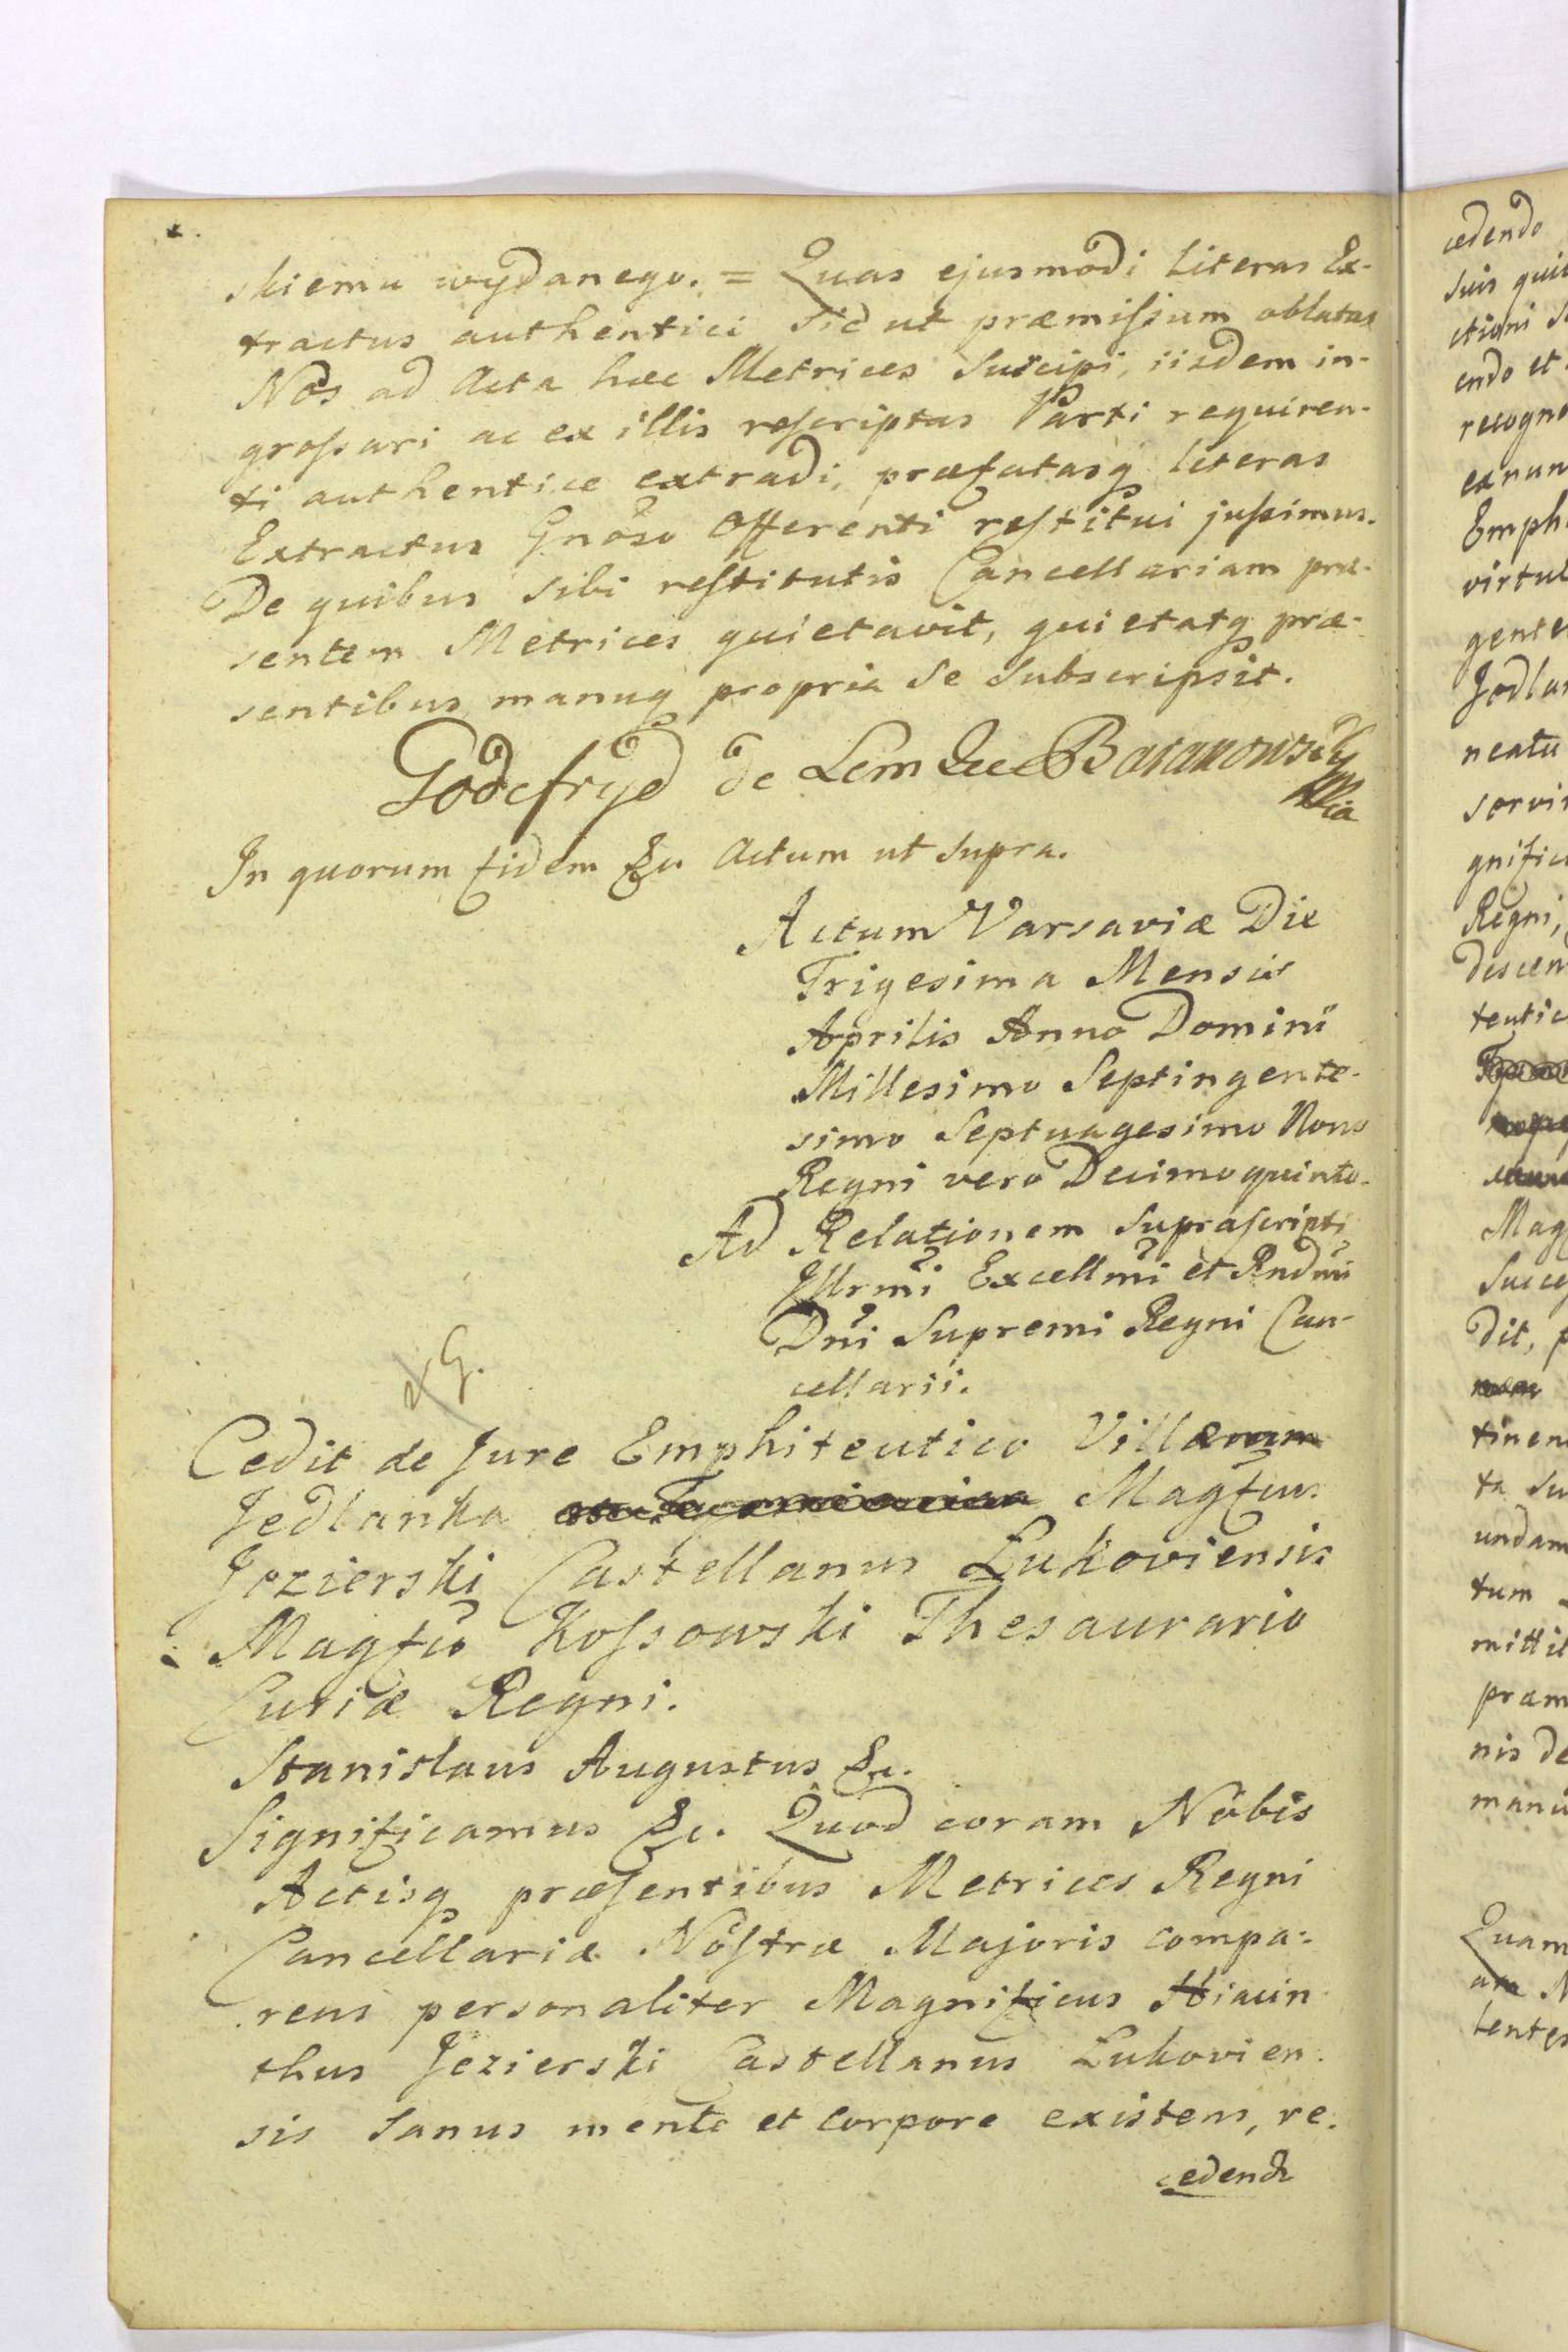 skiemu wydanego. = Quas ejusmodi literas Ex-
tractus authentici sic ut præmissum oblatas
Nos ad Acta hæc Metrices suscipi, iisdem in-
grossari ac ex illis rescriptas Parti requiren-
ti authentice extradi, præfatasq literas
Extractus Gnoso Offerenti restitui jussimus.
De quibus sibi restitutis Cancellariam præ-
sentem Metrices quietavit, quietatq præ-
sentibus manuq propria se subscripsit.
Godefryd de Lemke Baranowski
mpia
In quorum fidem &c Actum ut supra.
Actum Varsaviæ Die
Trigesima Mensis
Aprilis Anno Domini
Millesimo Septingente-
simo Septuagesimo Nono
Regni vero Decimoquinto.
Ad Relationem suprascripti
Illrmi Excellmi et Rndmi
Dni Supremi Regni Can-
cellarii.
Cedit de Jure Emphiteutico Villæ
Jedlanka Magfcus
Jezierski Castellanus Łukoviensis
Magfco Kossowski Thesaurario
Curiæ Regni.
Stanislaus Augustus &c.
Significamus &c. Quod coram Nobis
Actisq præsentibus Metrices Regni
Cancellariæ Nostræ Majoris compa-
rens personaliter Magnificus Hiacin
thus Jezierski Castellanus Łukovien-
sis sanus mente et corpore existens, re-
cedendo
cedendo
suis
endo et
virtu
neatu
Regni,
Mag
dit,
undam
tum
nis de
Quam